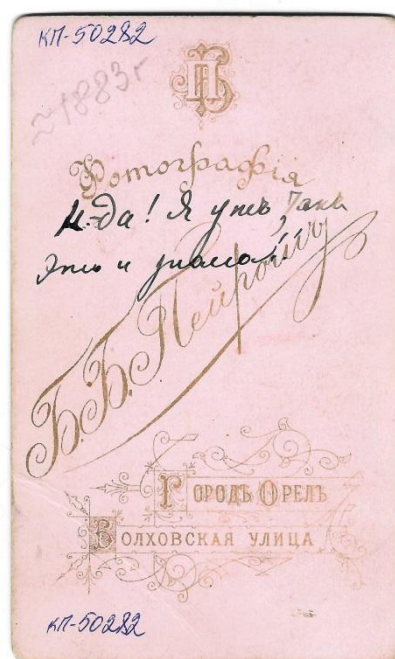 КП-50282
≈1883 г
Фотографія
М-да! Я ужъ, Танъ
и знала!
Б.Б. Пейрошъ
Городъ Орелъ
Болховская улица
КП-50282